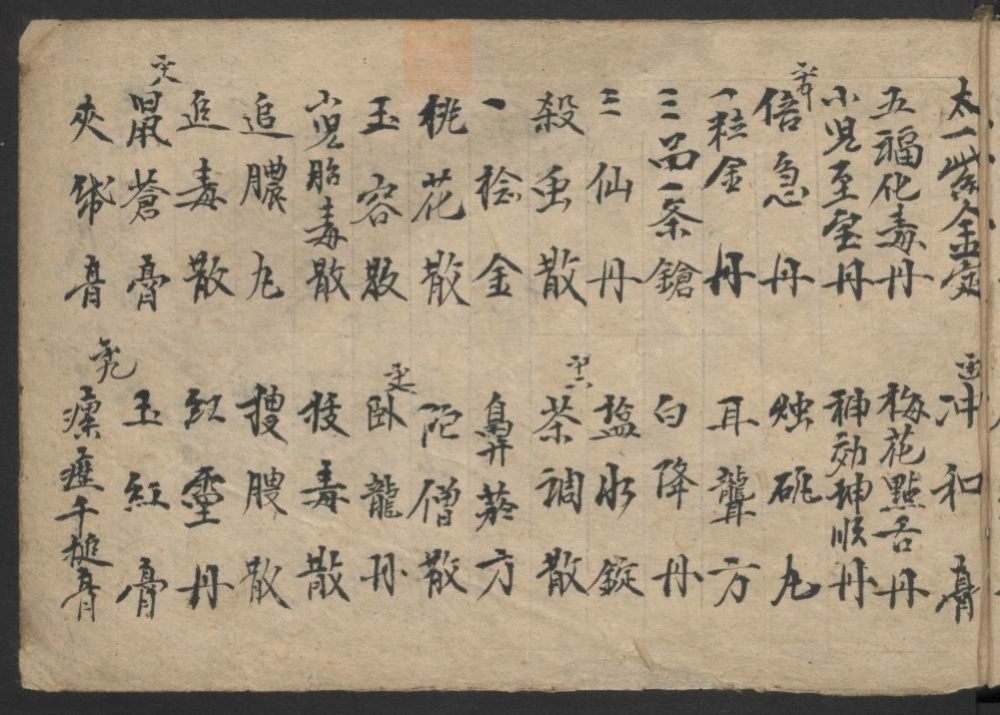 太一紫金定
五福化毒丹
小児至宝丹
倍急丹
一粒金丹
三品一条鎗
三仙丹
殺虫散
一捻金
桃花散
玉容散
小児胎毒散
追膿丸
追毒散
鼠蒼膏
夾紙膏
冲和膏
梅花點舌丹
神効坤順丹
丸
耳聾方
白降丹
塩水錠
茶調散
鼻菸方
陀僧散
卧龍丹
拔毒散
搜膿散
紅靈丹
玉紅膏
瘰癧千槌膏